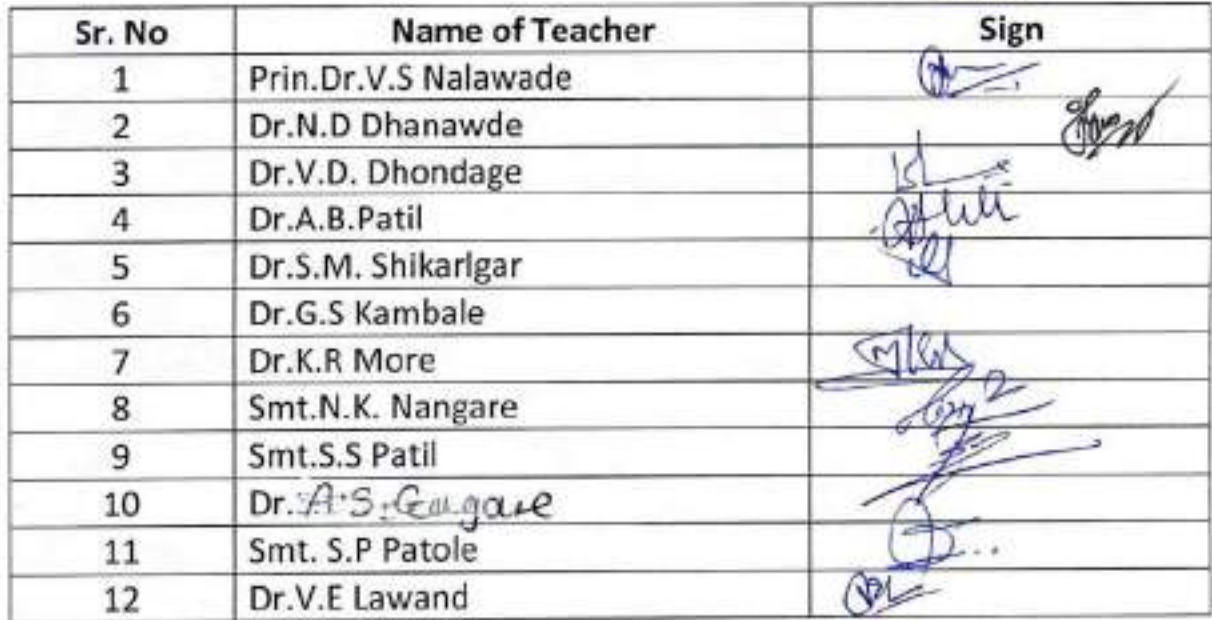 Sr. No Name of Teacher Sign
1 Prin.Dr.V.S Nalawade
2 Dr.N.D Dhanawde
3 Dr.V.D. Dhondage
4 Dr.A.B.Patil
5 Dr.S.M. Shikarlgar
6 Dr.G.S Kambale
7 Dr.K.R More
8 Smt.N.K. Nangare
9 Smt.S.S Patil
10 Dr. A.S.
11 Smt. S.P Patole
12 Dr.V.E Lawand